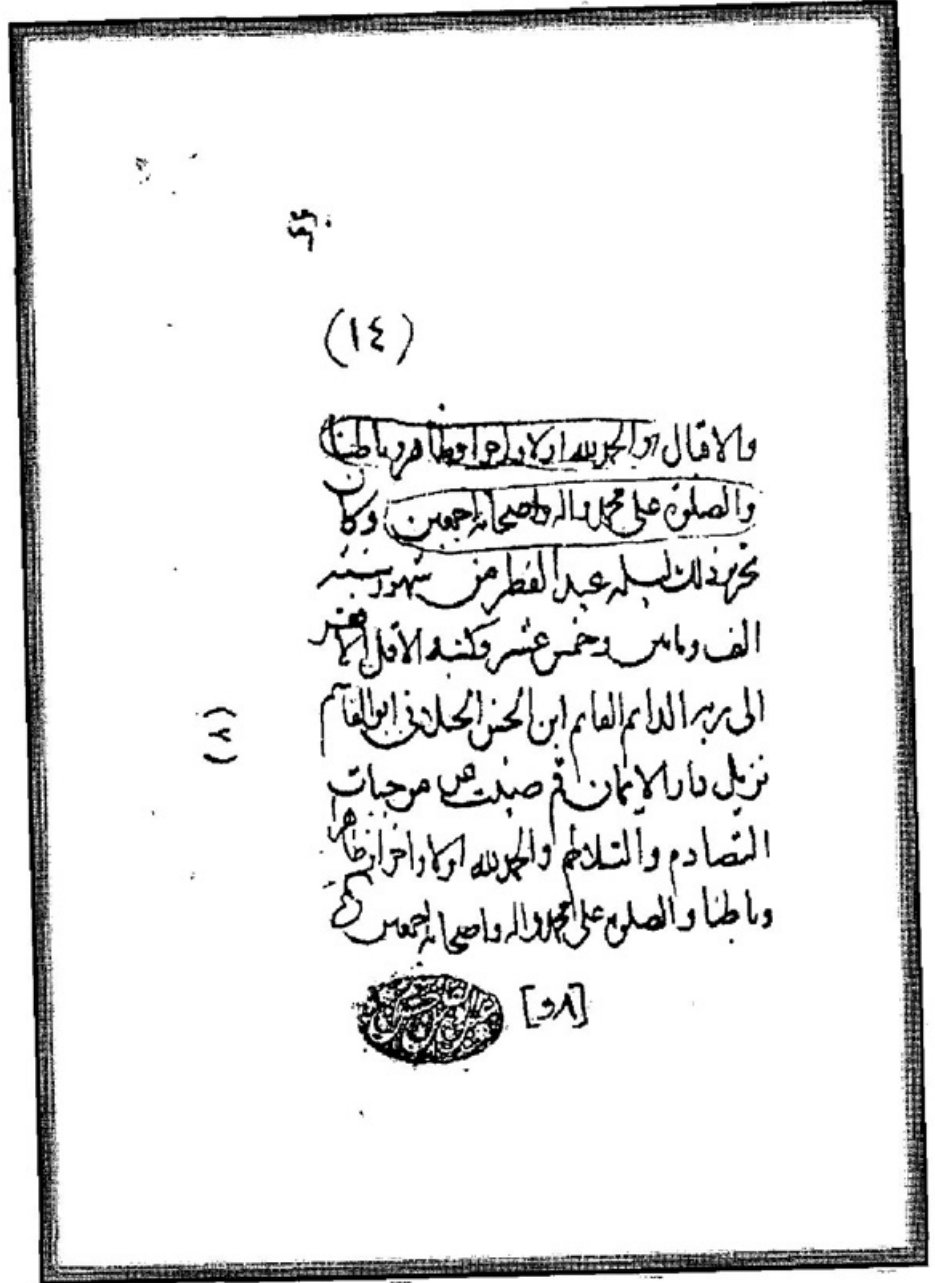 (١٤)
والاقال والحمد لله اولا واخرا وظاهرا وباطنا
والصلوة على محمد واله واصحابه اجمعين وكان
تحرير ذلك ليله عيد الفطر من شهور سنه
الف وماتين وخمس عشر وكتبه الاقل
الى ربه الدائم القايم ابن الحسن الجيلاني ابو القاسم
نزيل دار الايمان قم صينت عن موجبات
التصادم والتلاطم والحمد لله اولا واخرا وظاهرا
وباطنا والصلوة على محمد واله واصحابه اجمعين
[٨و]
(٧)